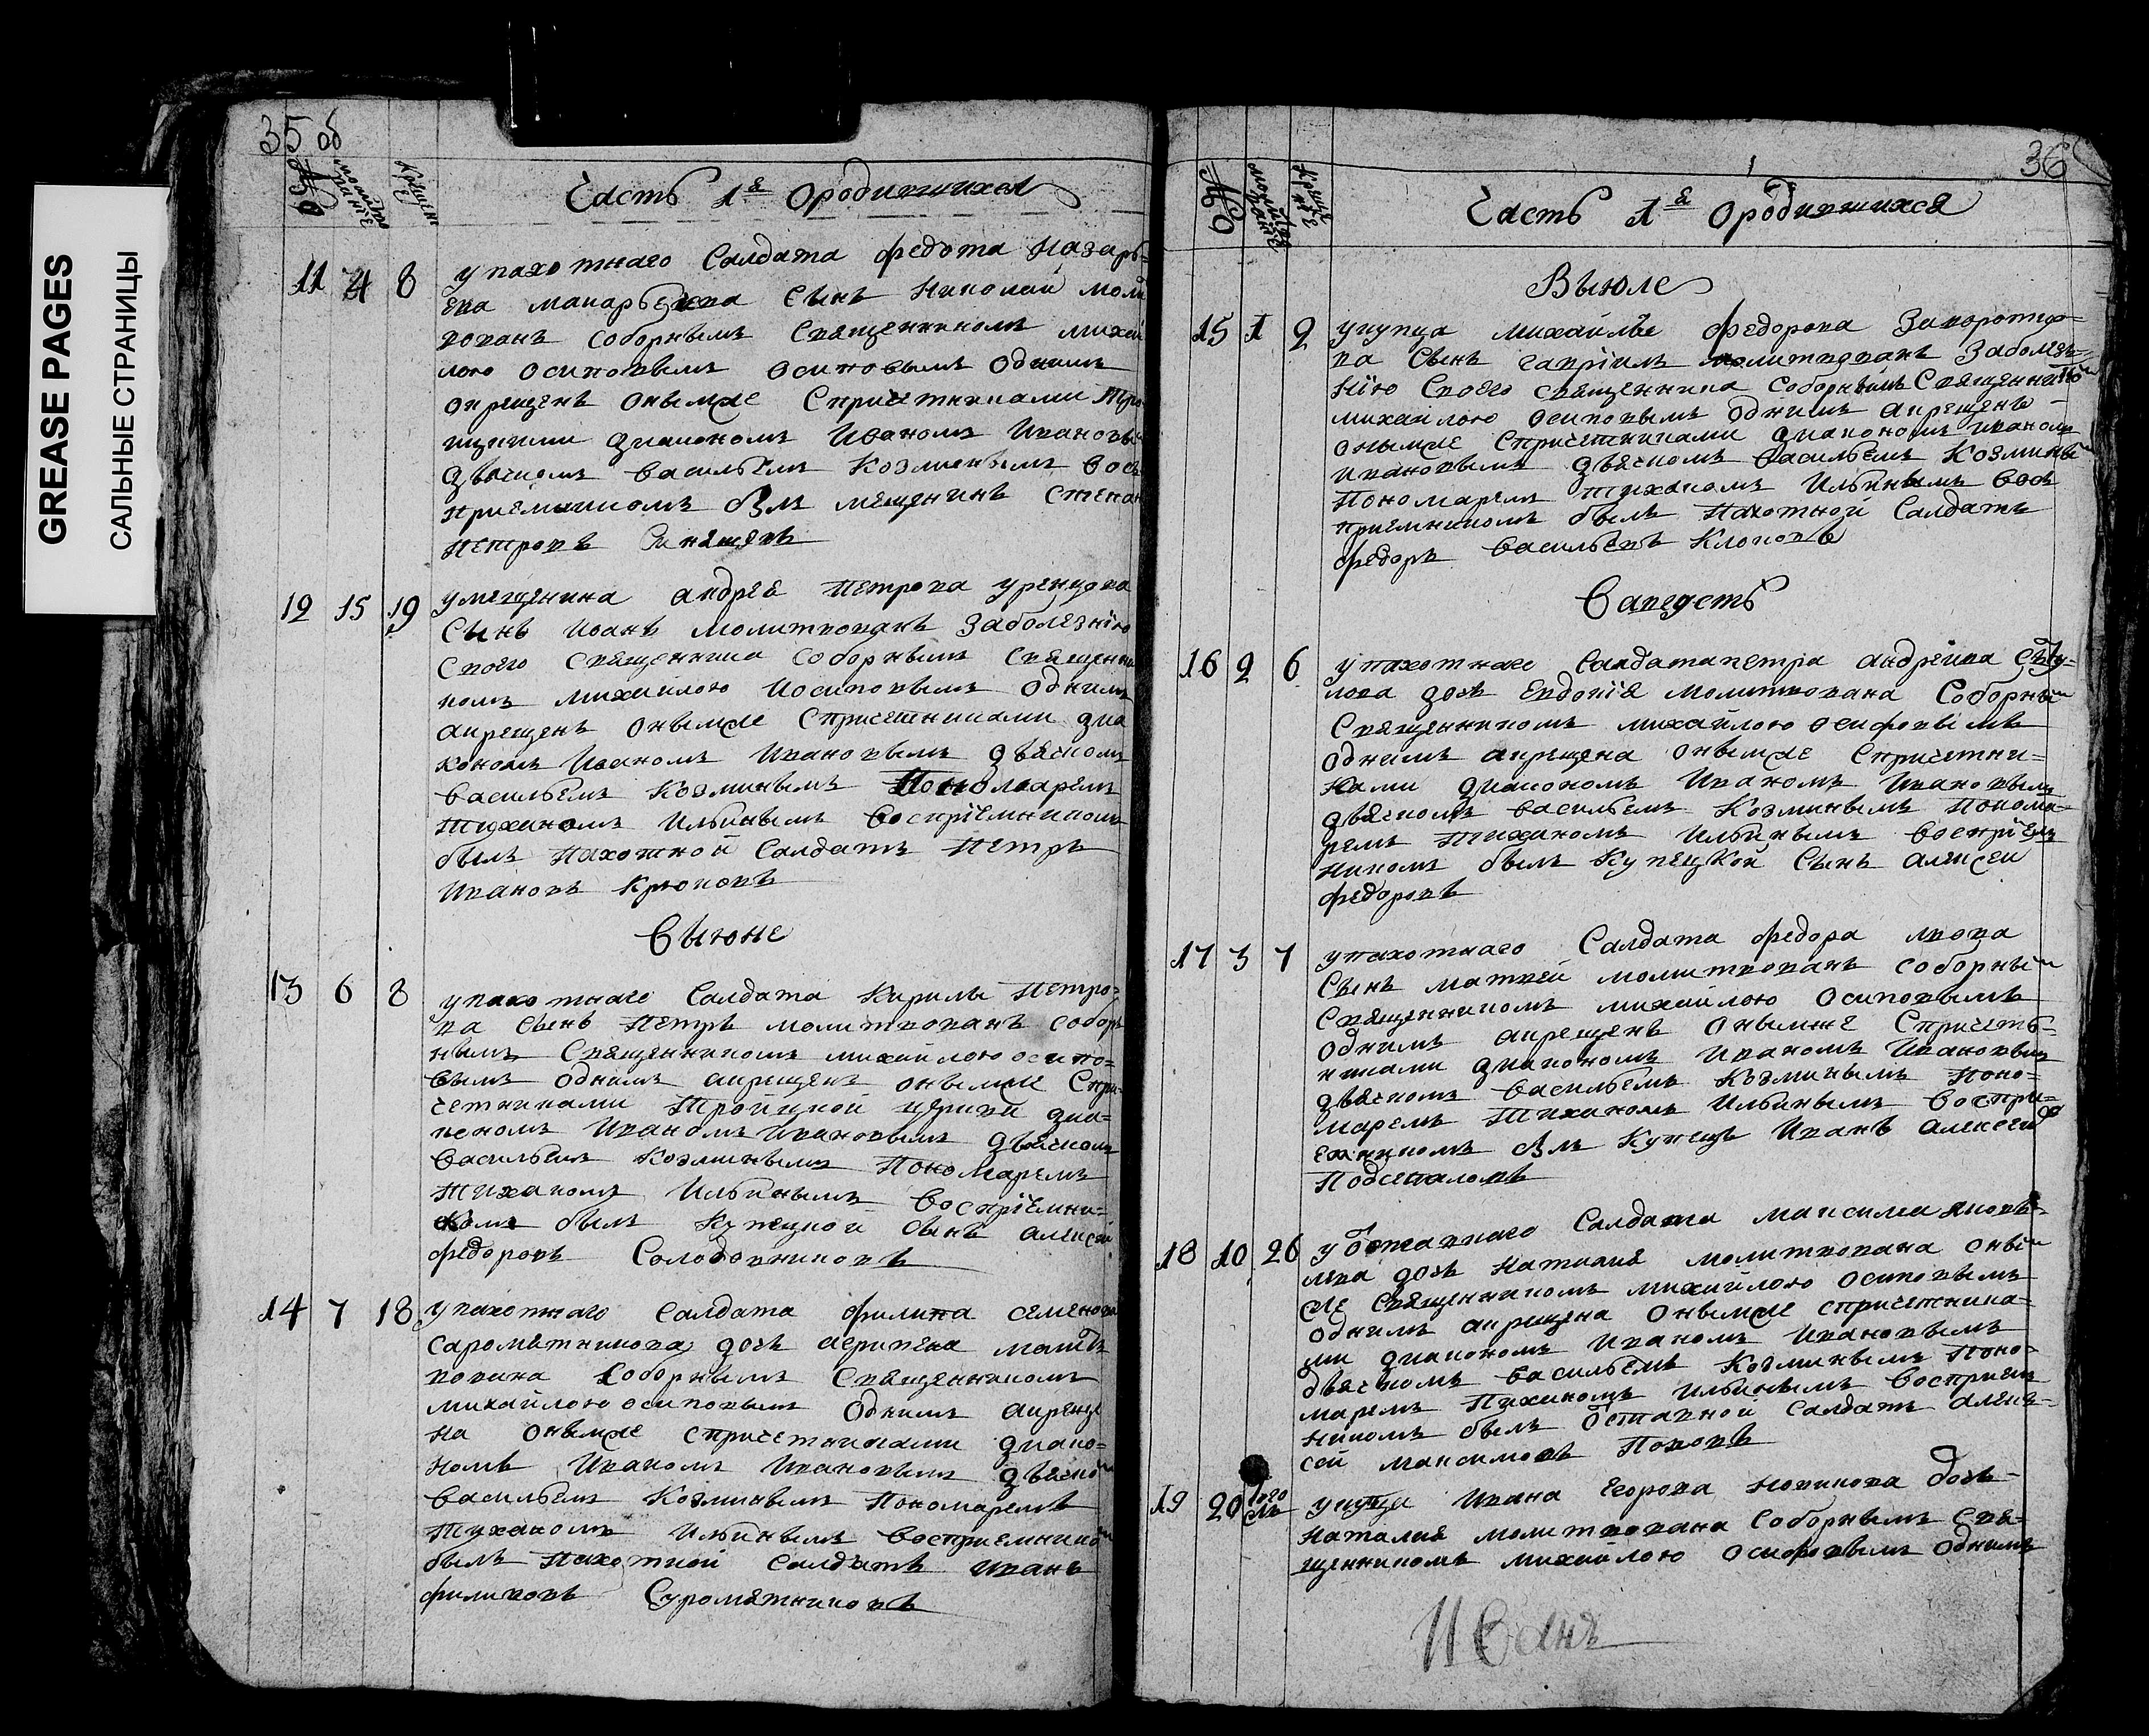 GREASE PAGES
САЛЬНЫЕ СТРАНИЦЫ
35 об
№ молитвование крещен
Часть 1я ородившихся
11 4 8 упахотнаго Салдата федота Назарь=
ева макарьева Сынъ Николай моли
твованъ соборнымъ Священникомъ михай
лою осиповымъ осиповымъ однимъ
окрещенъ онымже Спричетниками Тро
ицкими диакономъ Иваномъ Ивановым
дьячкомъ васильемъ Козминымъ вос
приемникомъ был мещенинъ степан
Петровъ
12 15 19 умещенина андрея Петрова уренцова
Сынъ Иванъ молитвованъ Заболезнію
своего священника соборнымъ священни
комъ михайлою Иосиповымъ однимъ
акрещенъ онымже Спричетниками диа
кономъ Иваномъ Ивановымъ дьячкомъ
васильемъ Козминымъ Пономаремъ
Тиханомъ Ильинымъ восприемникомъ
былъ Пахотной Салдатъ Петръ
Ивановъ Крюковъ
выюне
13 6 8 упахотнаго Салдата Кирилы Петро=
ва Сынъ Петръ молитвованъ собор
нымъ Священникомъ михайлою осипо=
вымъ однимъ акрещенъ онымже Спри=
четниками Тройцкой церкви диа=
кономъ Иваномъ Ивановымъ дьячкомъ
васильемъ Козминымъ Пономаремъ
Тиханомъ Ильинымъ восприемни=
комъ былъ Купецкой сынъ алексей
федоровъ Солодовниковъ
14 7 18 упахотнаго Салдата филипа семенова
саромятникова дочь агрипена молит
вована Соборнымъ Священникомъ
михайлою осиповым однимъ акреще
на онымже спричетниками диако=
номъ Иваномъ Ивановымъ дьячком
васильемъ Козминымъ Пономаремъ
Тиханомъ Ильинымъ восприемником
былъ Пахотной Салдатъ иванъ
филиповъ Суромятниковъ
36
№ молитвование крещение
Часть 1я ородившихся
Выюле
15 1 2 укупца михайлы федорова Заворотко=
ва Сынъ гавріилъ молитвованъ Заболез=
нію Своего священника соборнымъ Священником
михайлою осиповымъ однимъ акрещенъ
онымже Спричетниками диакономъ иваномъ
ивановымъ дьячкомъ васильемъ Козминым
Пономаремъ тиханомъ Ильинымъ вось
приемникомъ былъ Пахотной Салдатъ
федоръ васильевъ Клоковъ
Вавгусть
16 2 6 упахотнаго Салдата петра андреива
дочь Евдокія молитвована Соборным
Священникомъ михайлою осифовымъ
однимъ акрещена онымже Спричетни=
ками диакономъ Иваномъ Ивановымъ
дьячкомъ васильемъ Козминымъ Понома=
ремъ Тиханомъ Ильинымъ воспріем
никомъ былъ Купецкой Сынъ алексей
федоровъ
17 3 7 упахотнаго Салдата федора лвова
Сынъ матвей молитвованъ соборным
Священникомъ михайлою осиповымъ
однимъ акрещенъ онымже Спричеть=
никами диакономъ Иваномъ Ивановым
дьячкомъ васильемъ Козминымъ Поно=
маремъ Тиханомъ Ильинымъ воспри=
емникомъ был Купецъ Иванъ алексеив
Подсекаловъ
18 10 26 уОтставнаго Салдата максима яковь=
лева дочь Наталия молитвована оным
же Священникомъ михайлою осиповымъ
однимъ акрещена онымже спричетника=
ми диакономъ Иваномъ Ивановымъ
дьячкомъ васильемъ Козминымъ Поно=
маремъ Тиханомъ Ильинымъ восприем
никомъ былъ Отставной Салдатъ алек=
сей максимовъ Поповъ
19 20 того жъ укупца ивана егорова новикова дочь
Наталия молитвована соборнымъ Свя=
щенникомъ михайлою осифовымъ однимъ
Иванъ